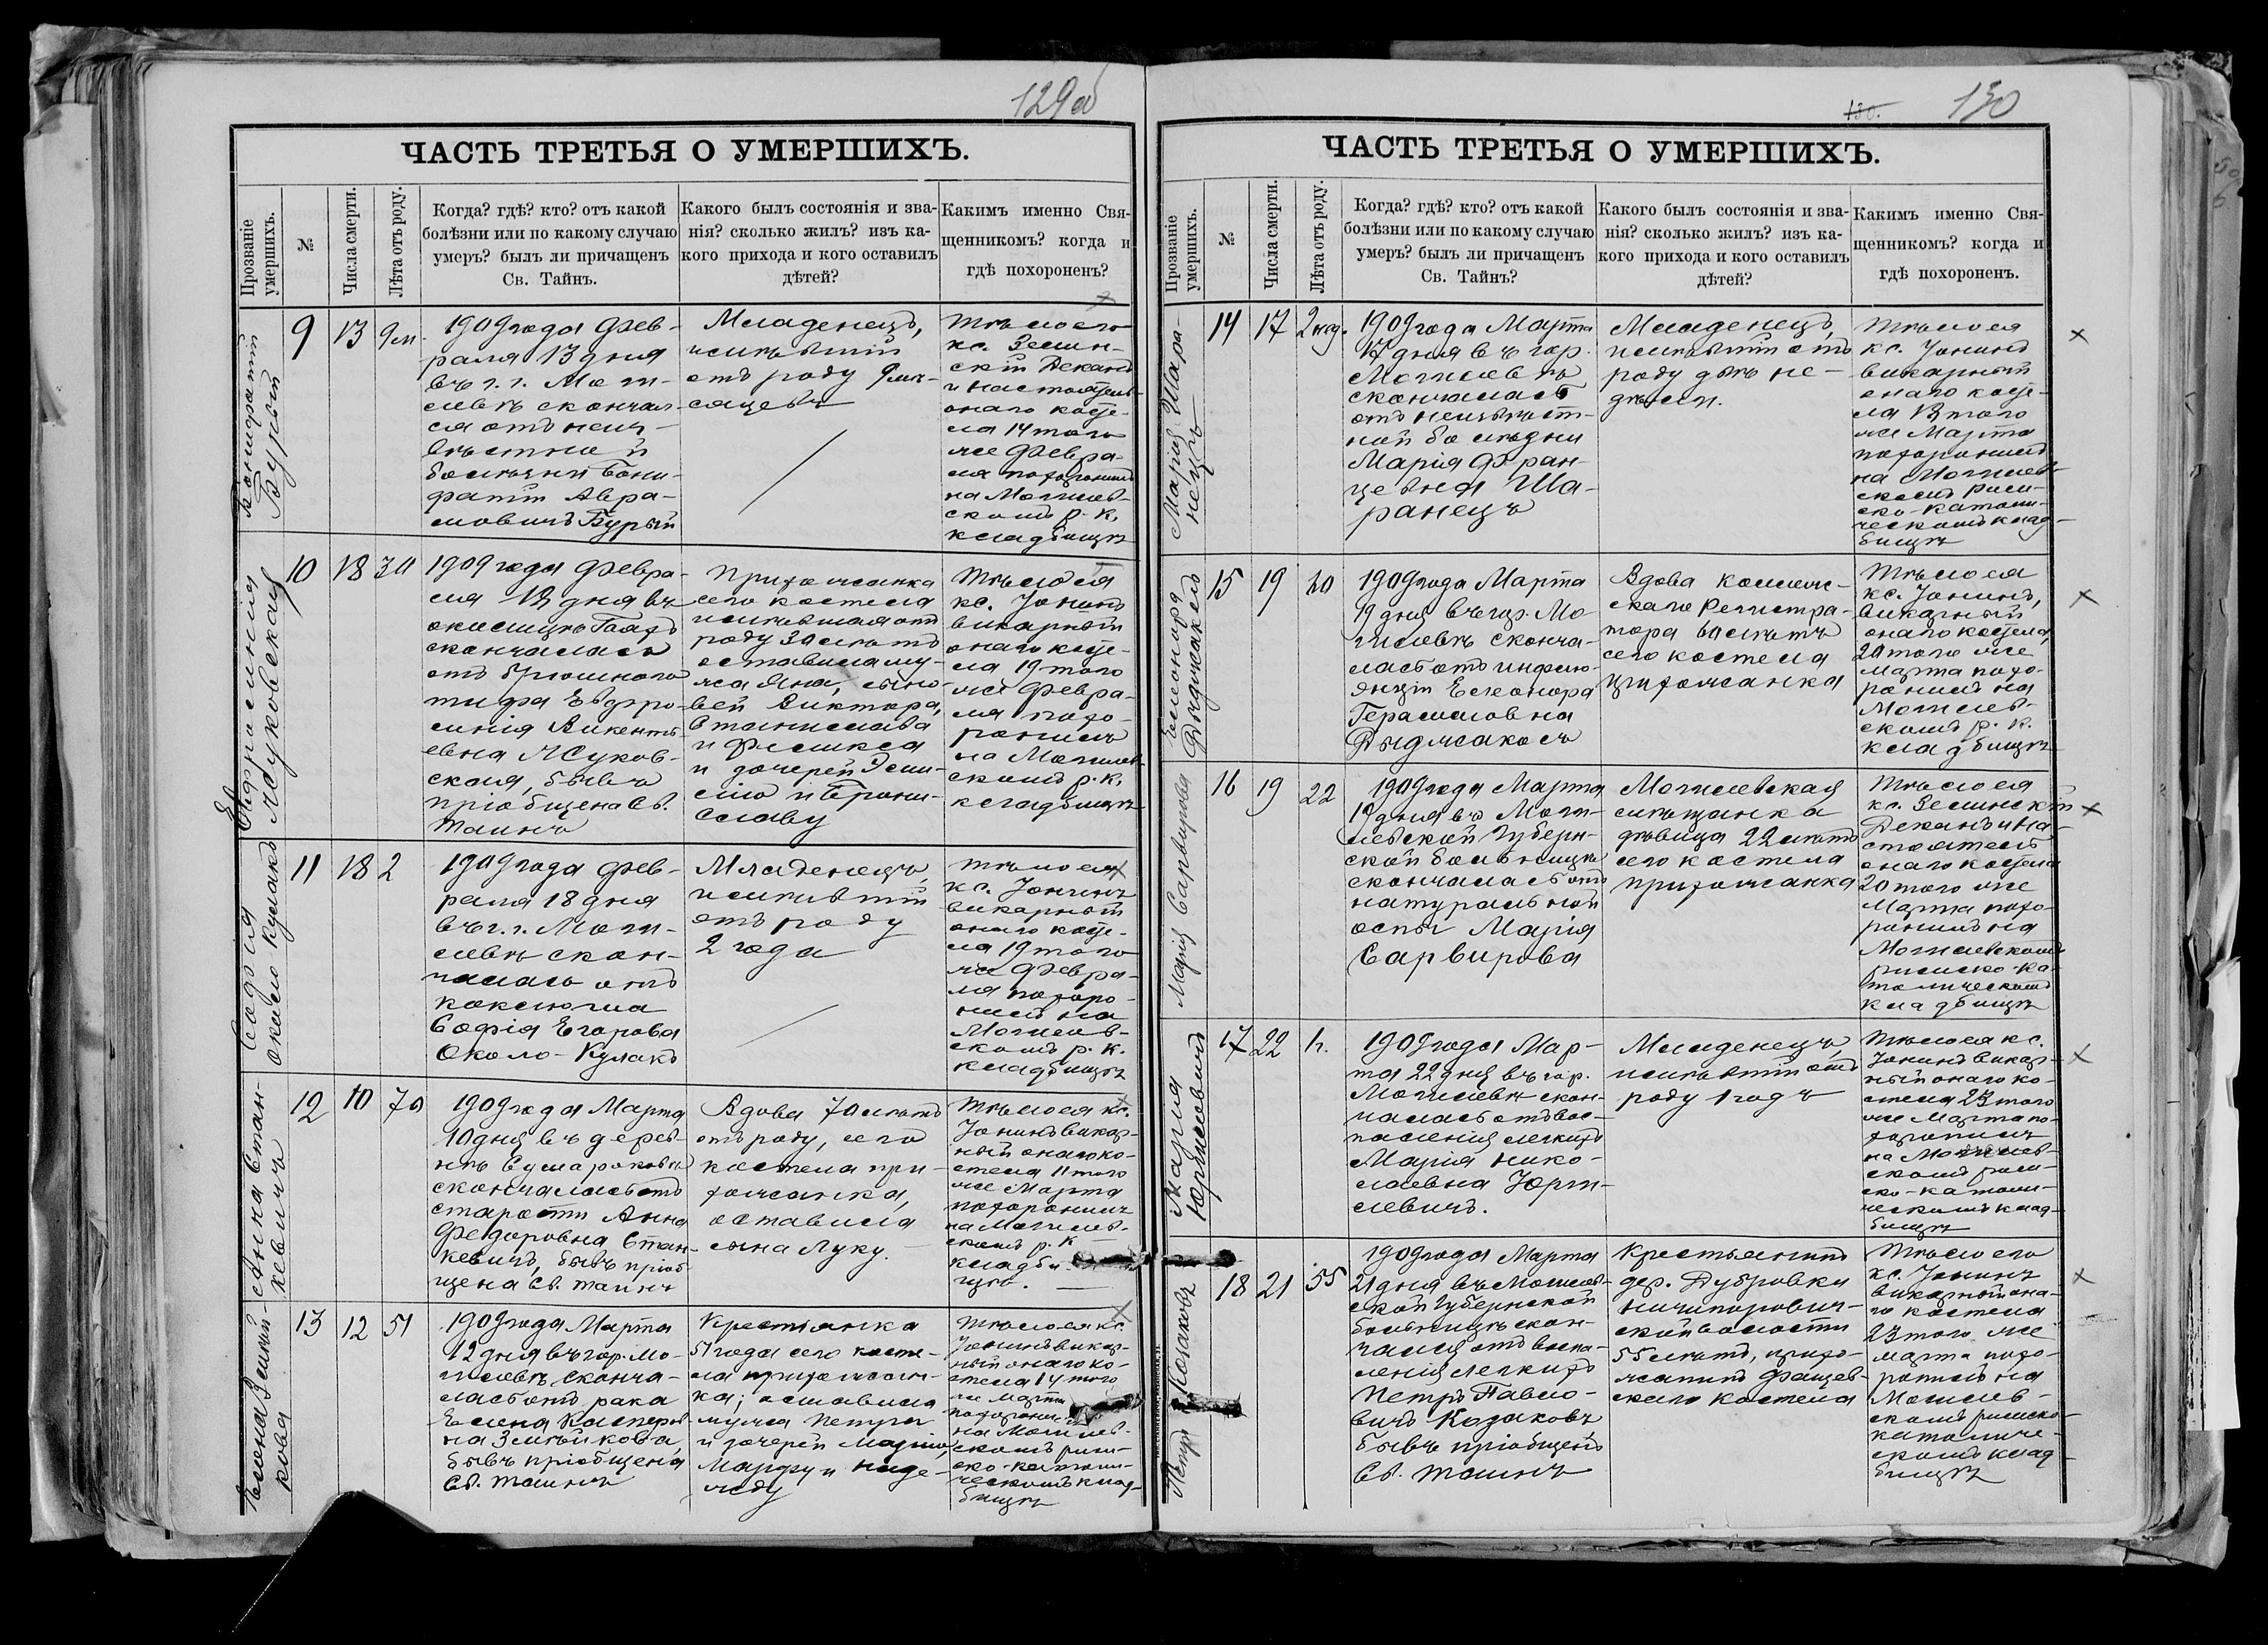 129об
ЧАСТЬ ТРЕТЬЯ О УМЕРШИХЪ.
Прозваніе умершихъ.
№
Числа смерти.
Лѣта отъ роду.
Когда? гдѣ? кто? отъ какой
болѣзни или по какому случаю
умеръ? былъ ли причащенъ
Св. Тайнъ.
Какого былъ состоянія и зва-
нія? сколько жилъ? изъ ка-
кого прихода и кого оставилъ
дѣтей?
Какимъ именно Свя-
щенникомъ? когда и
гдѣ похороненъ?
Бонифатій
Бурый
9
13
9 м.
1909 года Фев-
раля 13 дня
въ г. г. Моги-
левѣ скончал-
ся отъ неиз-
вѣстной
болѣзни Бони-
фатій Авра-
мовичъ Бурый
Младенецъ,
жившій
отъ роду 9 мѣ-
сяцевъ
Тѣло его
кс. Зелин-
скій Деканъ
и настоятель
онаго косте-
ла 14 того
же Февра-
ля похоронилъ
на Могилев-
скомъ р. к.
кладбищѣ
Евфросинія
Жуковская
10
18
30
1909 года Февра-
ля 18 дня въ
околицѣ
скончалась
отъ брюшного
тифа Евфро-
синія Викенть-
евна Жуков-
ская, бывъ
пріобщена Св.
Таинъ
Прихожанка
сего костела
жившая отъ
роду 30 лѣтъ
оставила му-
жа Яна, сыно-
вей Виктора,
Станислава
и Феликса
и дочерей Эми-
лію и Брони-
славу
Тѣло ея
кс. Іонинъ
викарный
онаго косте-
ла 19 того
же Февра-
ля похо-
ронилъ
на Могилев-
скомъ р. к.
кладбищѣ
Софія
Около Кулакъ
11
18
2
1909 года Фев-
раля 18 дня
въ г. г. Моги-
левѣ скон-
чалась отъ
коклюша
Софія Егорова
Около-Кулакъ
Младенецъ,
жившій
отъ роду
2 года
Тѣло ея
кс. Іонинъ
викарный
онаго косте-
ла 19 того
же Февра-
ля похоро-
нилъ на
Могилев-
скомъ р. к.
кладбищѣ
Анна Стан-
кевичъ
12
10
70
1909 года Марта
10 дня въ дерев-
нѣ Сумароковѣ
скончалась отъ
старости Анна
Федоровна Стан-
кевичъ, бывъ пріоб-
щена Св. Таинъ
Вдова 70 лѣтъ
отъ роду, сего
костела при-
хожанка,
оставила
сына Луку.
Тѣло ея кс.
Іонинъ викар-
ный онаго ко-
стела 11 того
же Марта
похоронилъ
на Могилев-
скомъ р. к
кладби-
щѣ.
Елена Змѣй-
кова
13
12
51
1909 года Марта
12 дня въ гор. Мо-
гилевѣ сконча-
лась отъ рака
Елена Касперов-
на Змѣйкова,
бывъ пріобщена
Св. Таинъ
Крестьянка
51 года сего косте-
ла прихожан-
ка; оставила
мужа Петра
и дочерей Марію,
Марфу и Наде-
жду
Тѣло ея кс.
Іонинъ викар-
ный онаго ко-
стела 14 того
же Марта
похоронилъ
на Могилев-
скомъ рим-
ско-католи-
ческомъ клад-
бищѣ
130.
130
ЧАСТЬ ТРЕТЬЯ О УМЕРШИХЪ.
Прозваніе умершихъ.
№
Числа смерти.
Лѣта отъ роду.
Когда? гдѣ? кто? отъ какой
болѣзни или по какому случаю
умеръ? былъ ли причащенъ
Св. Тайнъ?
Какого былъ состоянія и зва-
нія? сколько жилъ? изъ ка-
кого прихода и кого оставилъ
дѣтей?
Какимъ именно Свя-
щенникомъ? когда и
гдѣ похороненъ.
Марія Шара-
нецъ
14
17
2 нед.
1909 года Марта
17 дня въ гор.
Могилевѣ
скончалась
отъ неизвѣст-
ной болѣзни
Марія Фран-
цевна Ша-
ранецъ
Младенецъ,
жившій отъ
роду двѣ не-
дѣли.
Тѣло ея
кс. Іонинъ
викарный
онаго косте-
ла 18 того
же Марта
похоронилъ
на Могилев-
скомъ рим-
ско-католи-
ческомъ клад-
бищѣ
Елеонора
Выджакасъ
15
19
80
1909 года Марта
19 дня въ гор. Мо
гилевѣ сконча-
лась отъ инфлю-
энціи Елеонора
Герасимовна
Выджакасъ
Вдова коллеж-
скаго Регистра-
тора 80 лѣтъ
сего костела
прихожанка
Тѣло ея
кс. Іонинъ,
викарный
онаго костела,
20 того же
Марта похо-
ронилъ на
Могилев-
скомъ р. к.
кладбищѣ
Марія Сарвирова
16
19
22
1909 года Марта
19 дня въ Моги-
левской Губерн-
ской больницѣ
скончалась отъ
натуральной
оспы Марія
Сарвирова
Могилевская
мѣщанка
дѣвица 22 лѣтъ
сего костела
прихожанка
Тѣло ея
кс. Зелинскій
Деканъ и На-
стоятель
онаго костела
20 того же
Марта похо-
ронилъ на
Могилевскомъ
римско-ка-
толическомъ
кладбищѣ
Марія
Юргилевичъ
17
22
1 г.
1909 года Мар-
та 22 дня въ гор.
Могилевѣ скон-
чалась отъ вос-
паленія легкихъ
Марія Нико-
лаевна Юрги-
левичъ.
Младенецъ,
жившій отъ
роду 1 годъ
Тѣло ея кс.
Іонинъ викар-
ный онаго ко-
стела 23 того
же Марта по-
хоронилъ
на Могилев-
скомъ рим-
ско-католи-
ческомъ клад-
бищѣ
Петръ Козаковъ
18
21
55
1909 года Марта
21 дня въ Могилев-
ской Губернской
больницѣ скон-
чался отъ воспа-
ленія легкихъ
Петръ Павло-
вичъ Козаковъ
бывъ пріобщенъ
Св. Таинъ
Крестьянинъ
дер. Дубровки
Ничипорович-
ской волости
55 лѣтъ, прихо-
жанинъ Фащев-
скаго костела
Тѣло его
кс. Іонинъ
викарный она-
го костела
23 того же
Марта похо-
ронилъ на
Могилев-
скомъ римско-
католиче-
скомъ клад-
бищѣ